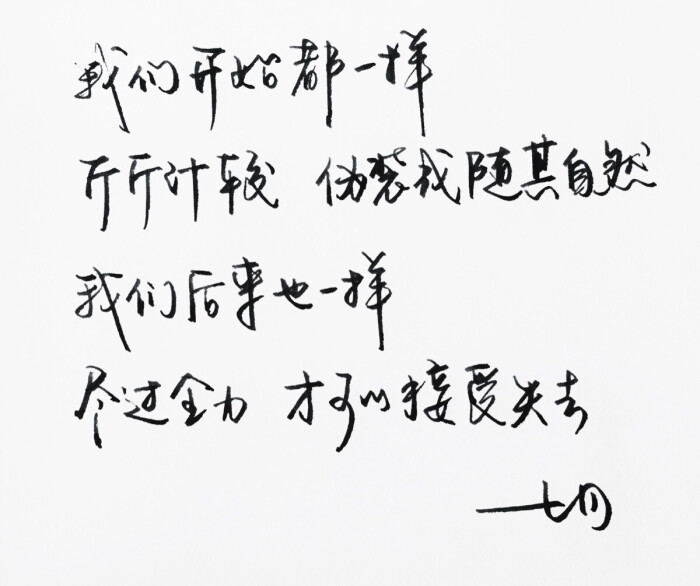 我们开始都一样
斤斤计较 伪装成随其自然
我们后来也一样
尽过全力 才可以接受失去